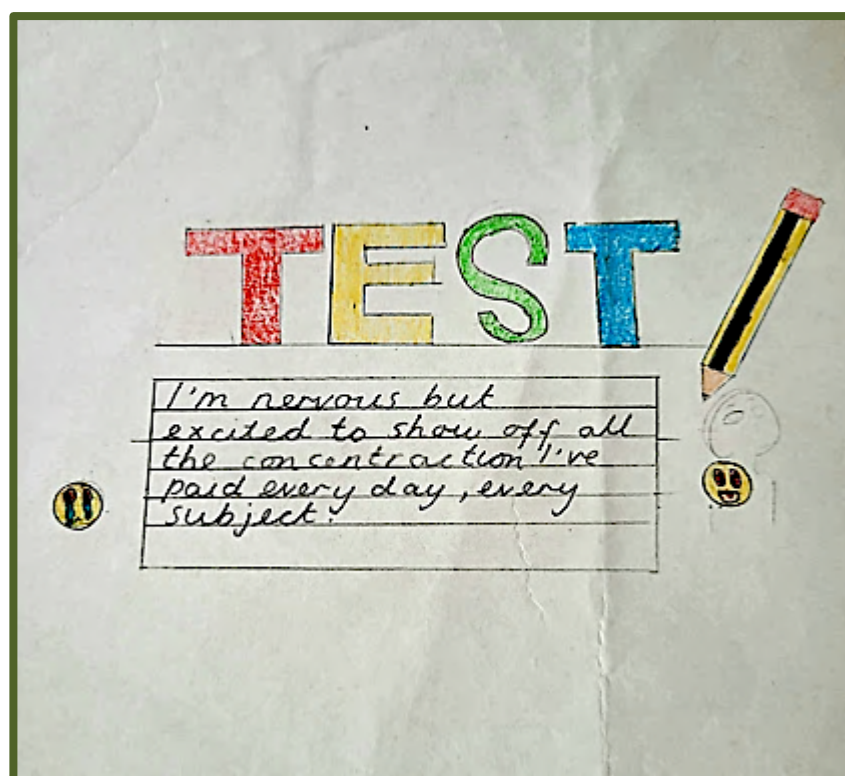 TEST
I'm nervous but
excited to show off all
the concontraction I've
paid every day, every
subject.